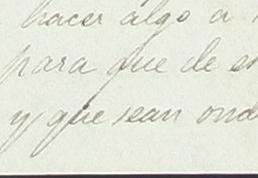 hacer algo a
para que de es
y que sean ond